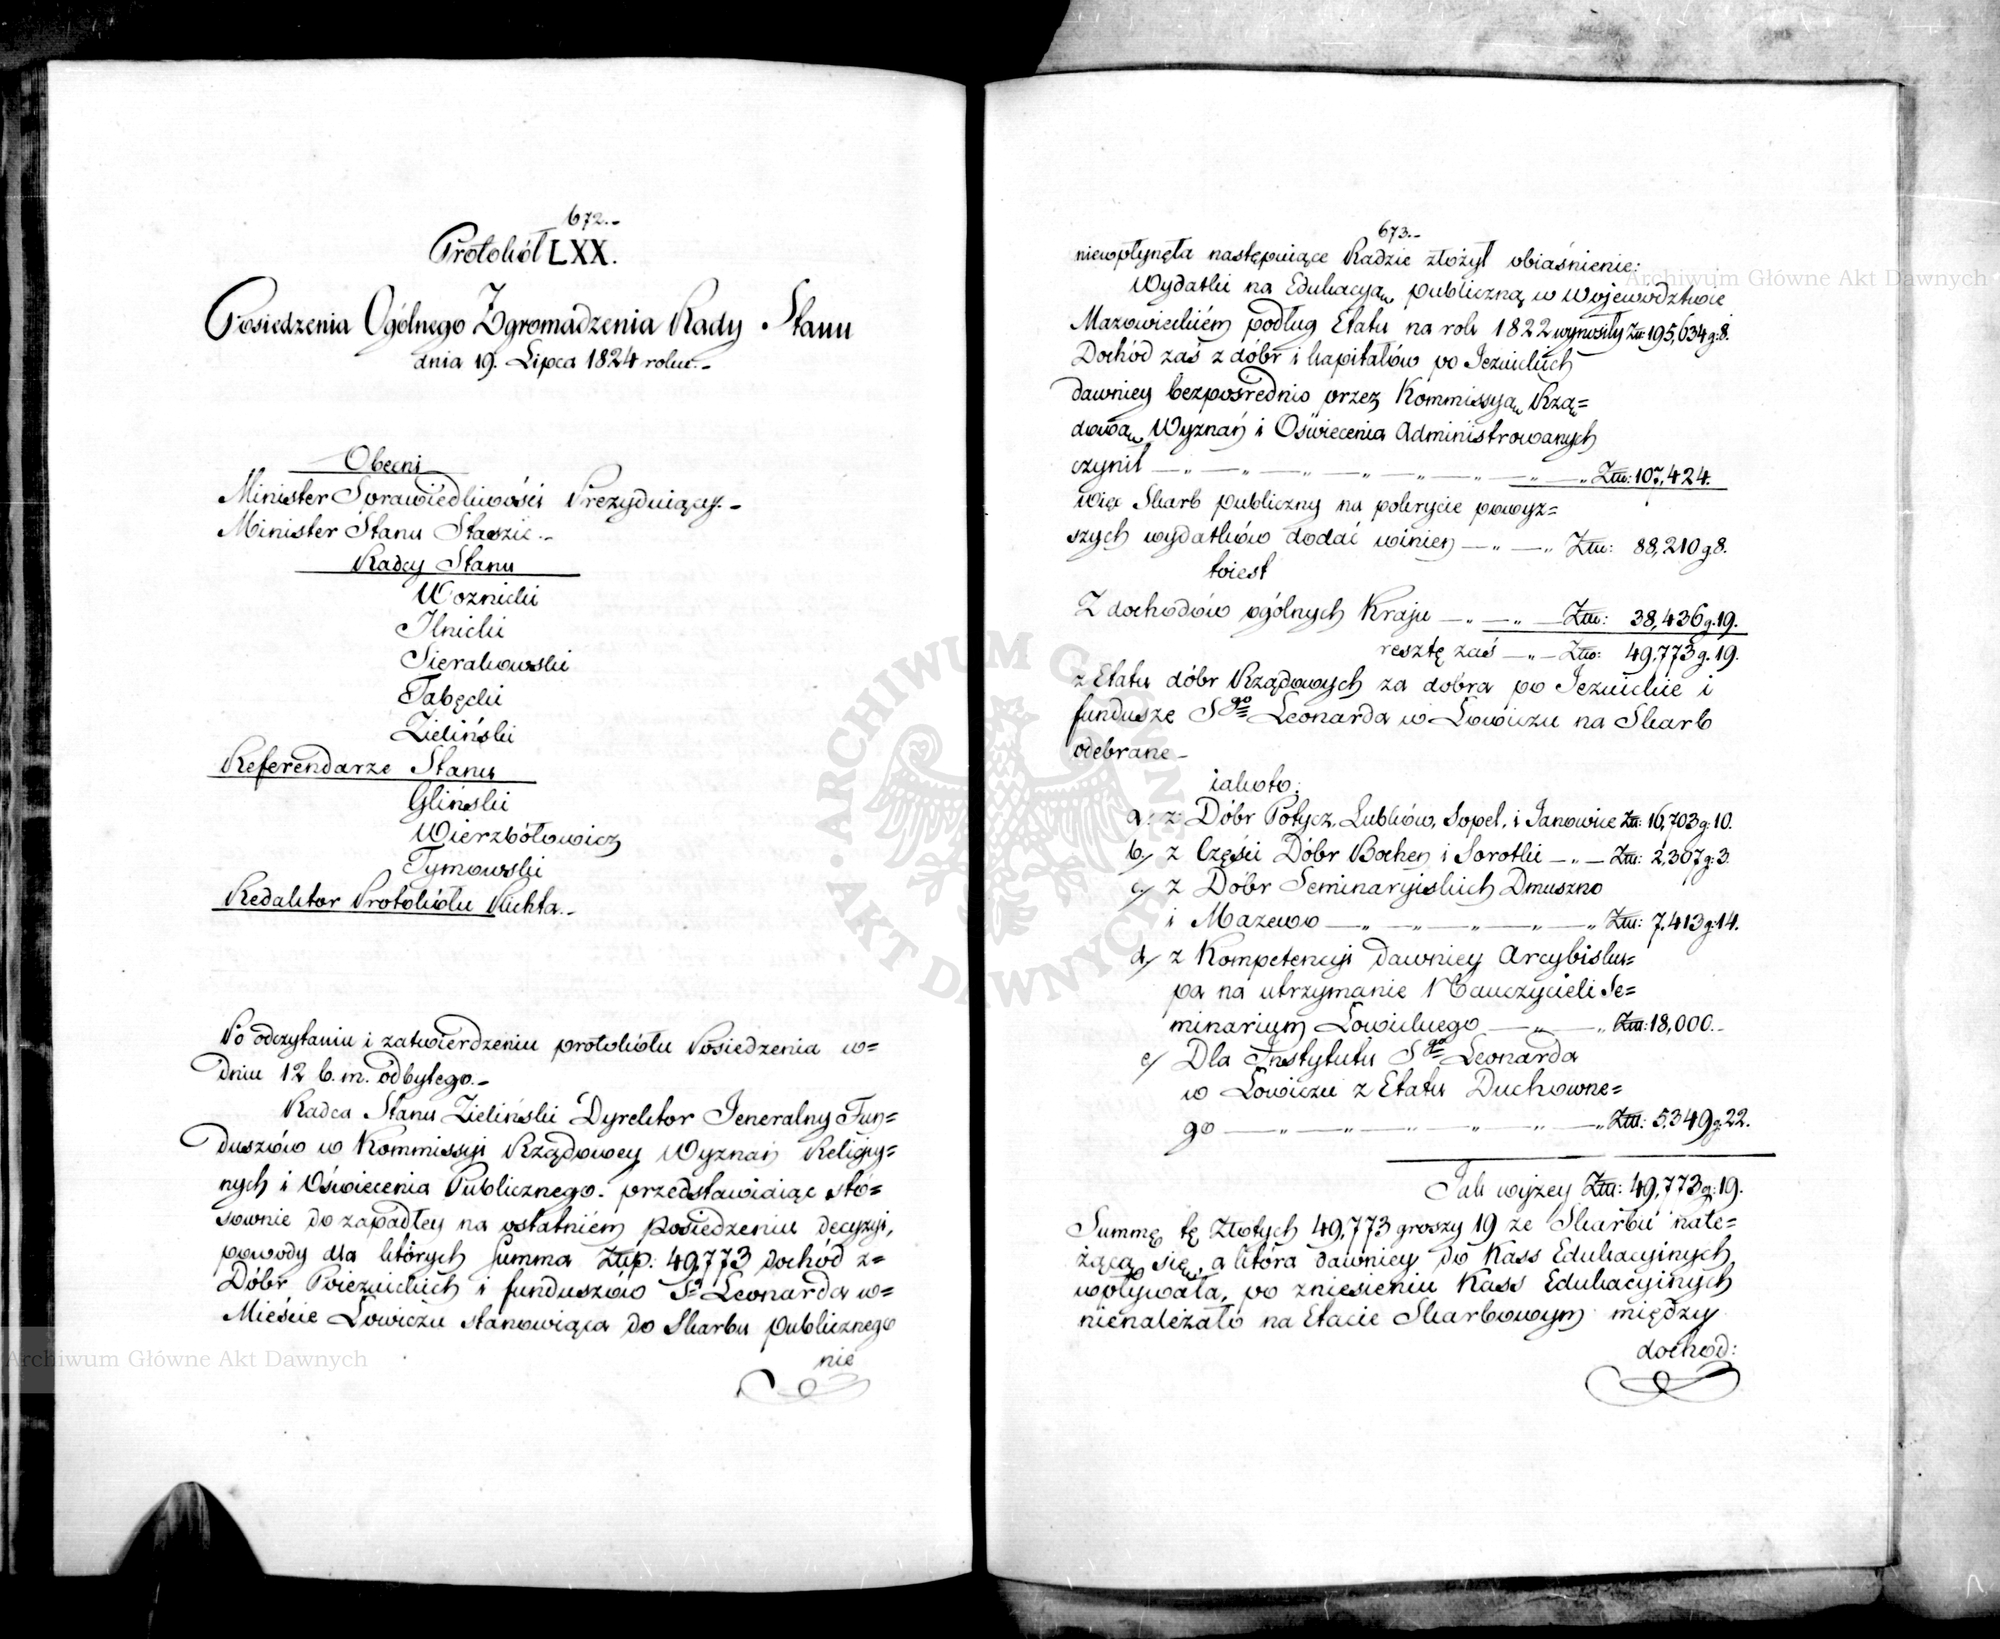 672.-
Protokół LXX.
Posiedzenia Ogólnego Zgromadzenia Rady Stanu
dnia 19. Lipca 1824 roku.-
Obecni
Minister Sprawiedliwości Prezyduiący.-
Minister Stanu Staszic.-
Radcy Stanu
Woznicki
Ilnicki
Sierakowski
Tabęcki
Zieliński
Referendarze Stanu
Gliński
Wierzbółowicz
Tymowski
Redaktor Protokółu Plichta.-
Po odczytaniu i zatwierdzeniu protokółu Posiedzenia w=
dniu 12 b. m. odbytego.-
Radca Stanu Zieliński Dyrektor Jeneralny Fun=
duszów w Kommissyi Rządowey Wyznań Religiy=
nych i Oświecenia Publicznego. przedstawiaiąc stó=
sownie do zapadłey na ostatniém posiedzeniu decyzyi,
powody dla których summa Złłp. 49,773 dochód z=
Dóbr Poiezuickich i funduszów Sgo Leonarda w=
Mieście Łowiczu stanowiąca do Skarbu publicznego
nie
673.-
niewpłynęła następuiące Radzie złożył obiaśnienie:
Wydatki na Edukacyą publiczną w Województwie
Mazowieckiém podług Etatu na rok 1822 wynosiły Złłt: 195,634 g: 8.
Dochód zaś z dóbr i kapitałów po Jezuickich
dawniey bezpośrednio przez Kommissyą Rzą=
dową Wyznań i Oświecenia Administrowanych
czynił — „ — „ — „ — „ — „ — „ — „ — „ Złłt: 107,424.
więc Skarb publiczny na pokrycie powyż=
szych wydatków dodać winien — „ — „ Złłt: 88,210 g 8.
toiest
Z dochodów ogólnych Kraju — „ — „ — Złłt: 38,436 g. 19.
resztę zaś — „ — Złłt: 49,773 g. 19.
z Etatu dóbr Rządowych za dobra po Jezuickie i
fundusze Sgo Leonarda w Łowiczu na Skarb
odebrane -
iakoto:
a: z Dóbr Potycz, Lubków, Sopel, i Janowice Złł: 16,703 g: 10.
b/ z Części Dóbr Bochen i Sorotki — „ — Złł: 2,307 g: 3.
c/ z Dóbr Seminaryiskich Dmuszno
i Mazewo — „ — „ — „ — „ — „ Złł: 7,413 g: 14.
d/ z Kompetencyi dawniey Arcybisku=
pa na utrzymanie Nauczycieli Se=
minarium Łowickiego — „ — „ Złł: 18,000.-
e/ Dla Instytutu Sgo Leonarda
w Łowiczu z Etatu Duchowne=
go — „ — „ — „ — „ — „ — „ Złł: 5,349 g: 22.
Jak wyżey Złł: 49,773 g: 19.
Summę tę Złotych 49,773 groszy 19 ze Skarbu nale=
żącą się, a która dawniey do Kass Edukacyinych
wpływała, po zniesieniu Kass Edukacyinych
nienależało na Etacie Skarbowym między
dochod:
Archiwum Główne Akt Dawnych
Archiwum Główne Akt Dawnych
Archiwum Główne Akt Dawnych
ARCHIWUM GŁÓWNE AKT DAWNYCH